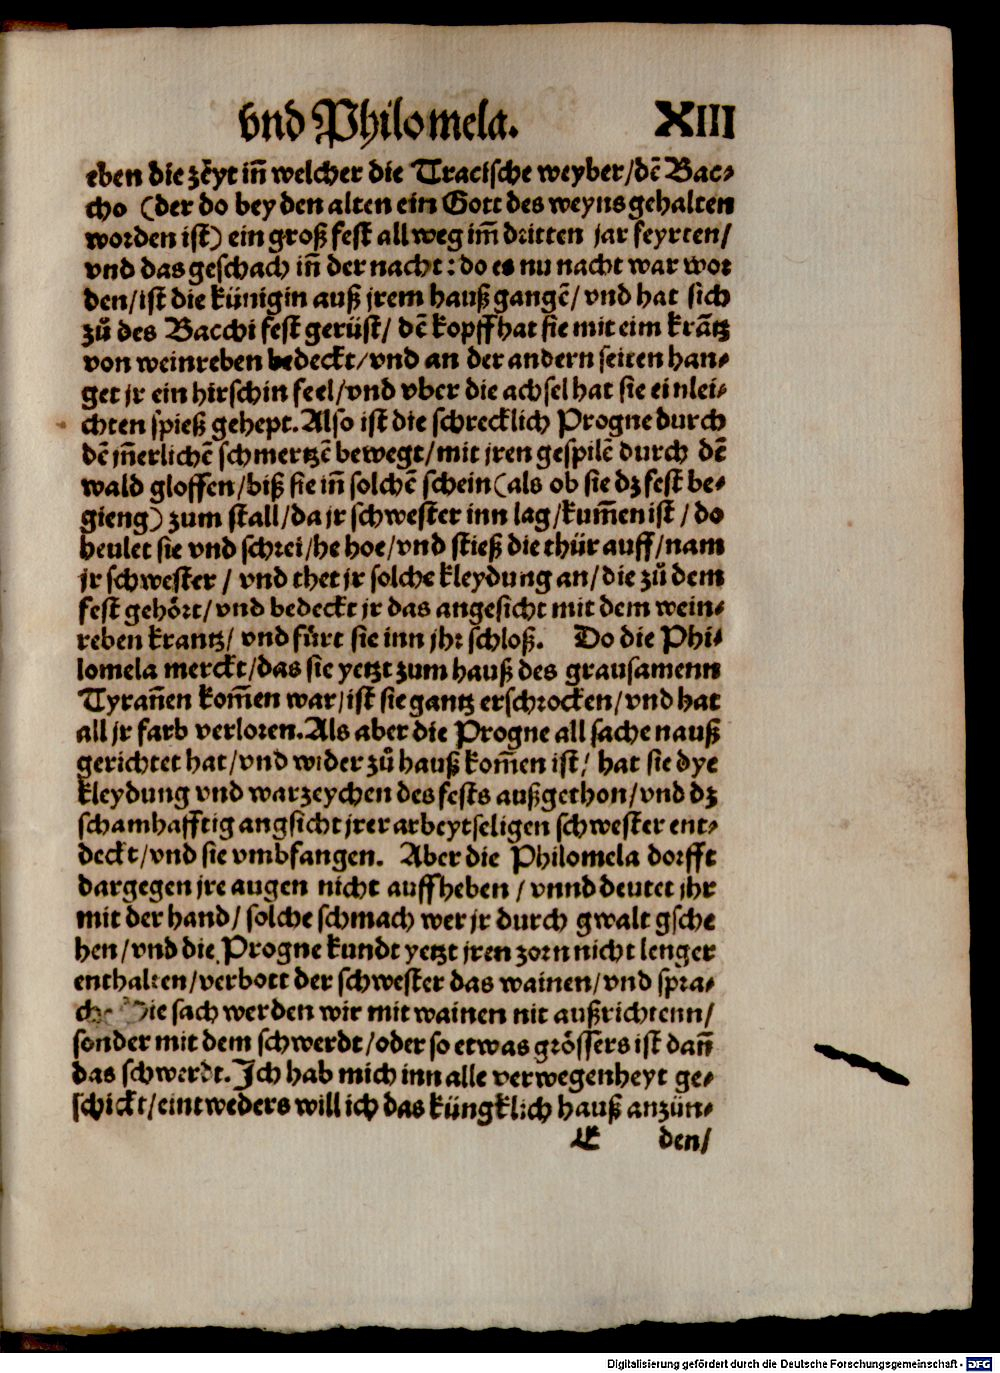 vnd Philomela. XIII
eben die zeyt iñ welcher die Tracische weyber/dẽ Bac-
cho (der do bey den alten ein Gott des weyns gehalten
worden ist) ein groß fest allweg im̃ dritten jar feyrten/
vnd das geschach iñ der nacht: do es nu nacht war wor
den/ist die künigin auß jrem hauß gangẽ/vnd hat sich
zů des Bacchi fest gerüst/ dẽ kopff hat sie mit eim krãtz
von weinreben bedeckt/vnd an der andern seiten han-
get jr ein hirschin feel/vnd vber die achsel hat sie ein lei-
chten spieß gehept. Also ist die schrecklich Progne durch
dẽ jñerlichẽ schmertzẽ bewegt/mit jren gespilẽ durch dẽ
wald gloffen/biß sie iñ solchẽ schein (als ob sie dz fest be-
gieng) zum stall/da jr schwester inn lag/kum̃en ist/ do
heulet sie vnd schrei/he hoe/vnd stieß die thür auff/nam
jr schwester/ vnd thet jr solche kleydung an/die zů dem
fest gehört/vnd bedeckt jr das angesicht mit dem wein-
reben krantz/ vnd fürt sie inn jhr schloß. Do die Phi-
lomela merckt/das sie yetzt zum hauß des grausamenn
Tyrañen kom̃en war/ist sie gantz erschrocken/vnd hat
all jr farb verloren. Als aber die Progne all sachen auß
gerichtet hat/vnd wider zů hauß kom̃en ist/ hat sie dye
kleydung vnd warzeychen des fests außgethon/vnd dz
schamhafftig angsicht jrer arbeytseligen schwester ent-
deckt/vnd sie vmbfangen. Aber die Philomela dorfft
dargegen jre augen nicht auffheben/ vnnd deutet jhr
mit der hand/ solche schmach wer jr durch gwalt gsche
hen/vnd die Progne kundt yetzt jren zorn nicht lenger
enthalten/verbott der schwester das wainen/vnd spra-
ch. Die sach werden wir mit wainen nit außrichtenn/
sonder mit dem schwerdt/oder so etwas grössers ist dañ
das schwerdt. Ich hab mich inn alle verwegenheyt ge-
schickt/eintweders will ich das küngklich hauß anzün-
E den/
Digitalisierung gefördert durch die Deutsche Forschungsgemeinschaft - DFG